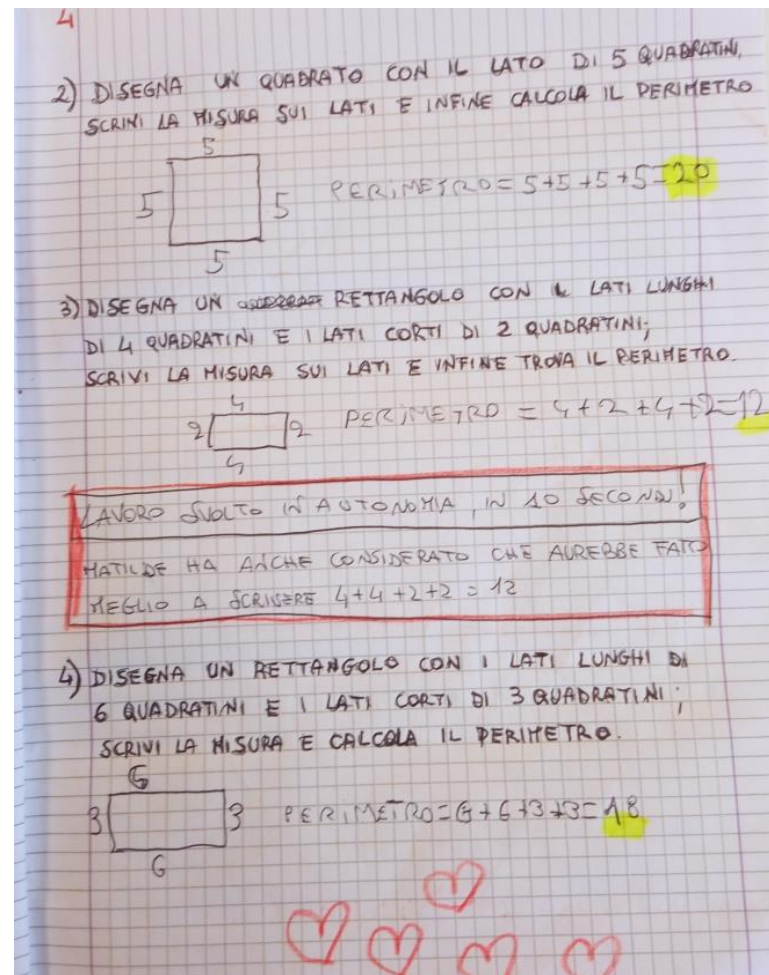 4
2) DISEGNA UN QUADRATO CON IL LATO DI 5 QUADRATINI,
SCRIVI LA MISURA SUI LATI E INFINE CALCOLA IL PERIMETRO
5
5 5 PERIMETRO = 5+5+5+5=20
5
3) DISEGNA UN RETTANGOLO CON I LATI LUNGHI
DI 4 QUADRATINI E I LATI CORTI DI 2 QUADRATINI;
SCRIVI LA MISURA SUI LATI E INFINE TROVA IL PERIMETRO.
4
2 2 PERIMETRO = 4+2+4+2=12
4
LAVORO SVOLTO IN AUTONOMIA, IN 10 SECONDI!
MATILDE HA ANCHE CONSIDERATO CHE AVREBBE FATTO
MEGLIO A SCRIVERE 4+4+2+2=12
4) DISEGNA UN RETTANGOLO CON I LATI LUNGHI DI
6 QUADRATINI E I LATI CORTI DI 3 QUADRATINI;
SCRIVI LA MISURA E CALCOLA IL PERIMETRO.
6
3 3 PERIMETRO=6+6+3+3=18
6